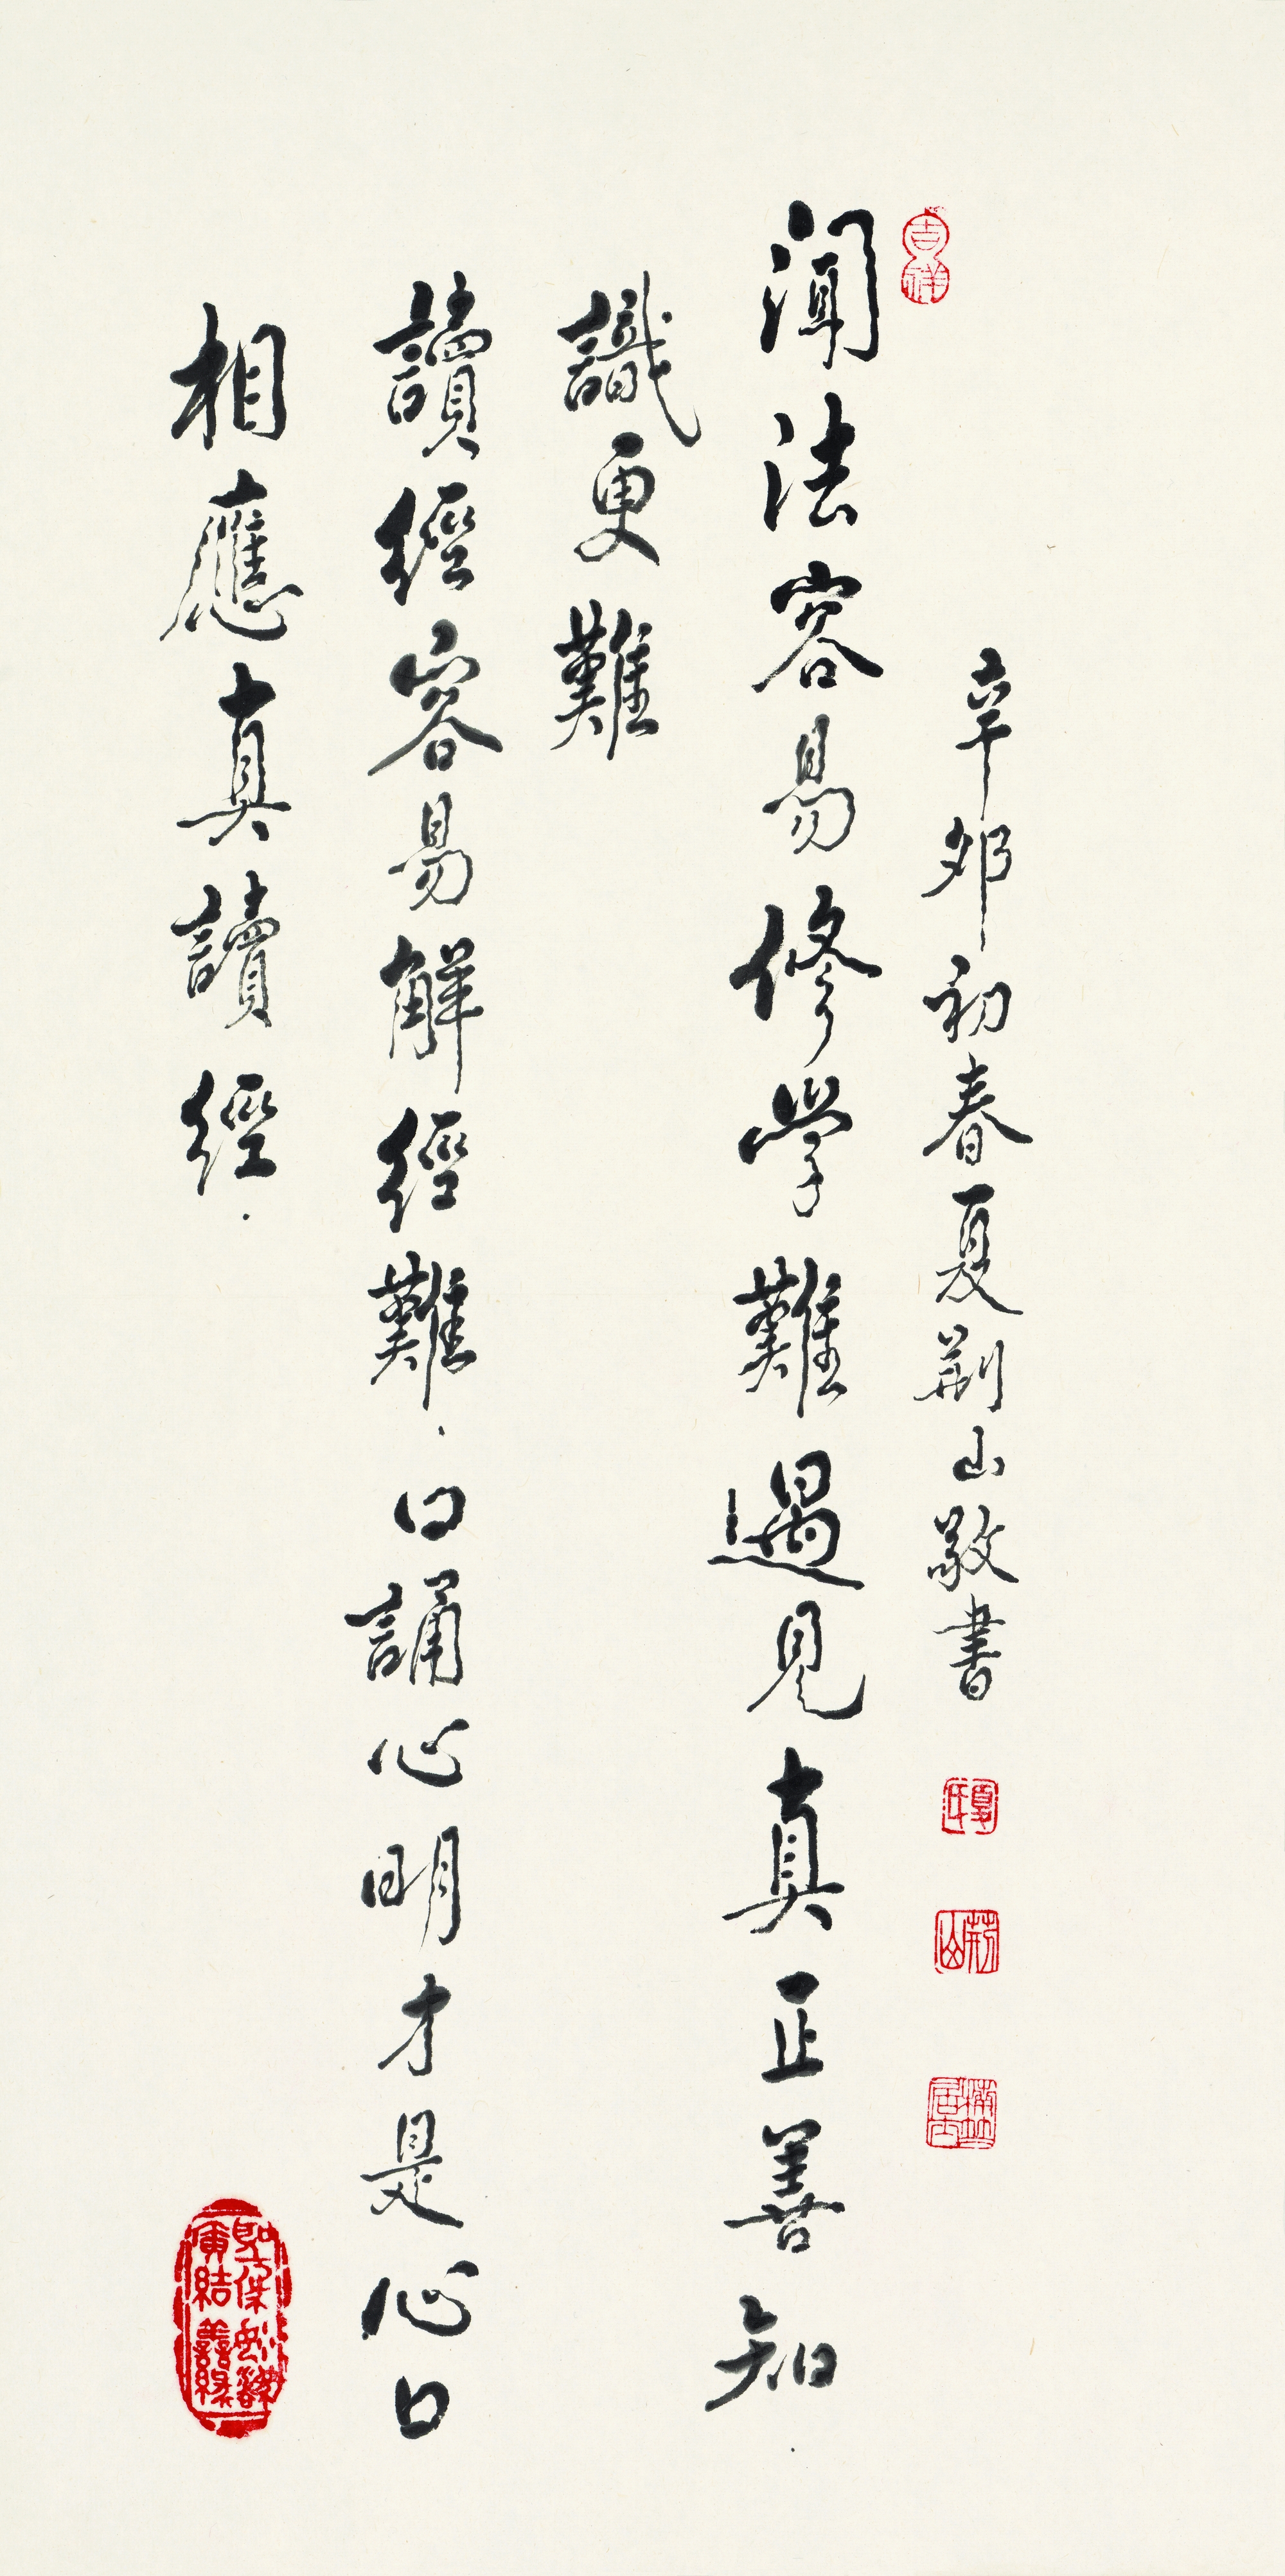 吉祥
辛卯初春夏荆山敬書
夏氏
荆山
聞法容易修學難遇見真正善知
識更難
讀經容易解經難．口誦心明才是心口
相應真讀經．
廣結善緣